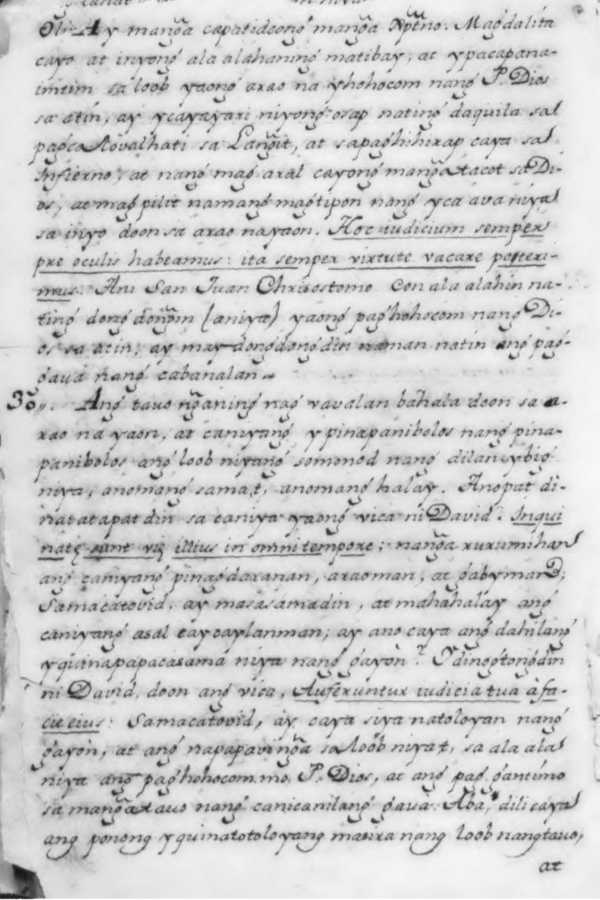 Ay manga capatidcong manga Xptno. Magdalita
cayo at inyong ala alahaning matibay, at ypacapana-
imtim sa loob yaong arao na yhohocom nang P. Dios
sa atin, ay ycayayari niyong osap nating daquila sa
pagca lovalhati sa Langit, at sa paghihirap caya sa
Infierno, at nang mag aral cayong mangatacot sa Di-
os, at magpilit namang magtipon nang yca ava niya
sa inyo doon sa arao na yaon. Hoc iudicium semper
pre oculis habeamus: ita semper virtute vacare poteri-
mus. Ani San Juan Chrisostomo con ala alahin na-
ting dong dongin (aniya) yaong paghohocom nang Di-
os sa atin, ay may dongdong din naman natin ang pag-
gava nang cabanalan.
Ang tauo nganing nag vavalan bahala doon sa a-
rao na yaon, at caniyang ypinapanibolos nang pina-
panibolos ang loob niyang somonod nang dilan ybig
niya, anomang sama,t, anomang halay. Anopat di-
natatapat din sa caniya yaong vica ni David. Inqui
natę sunt vię illius in omni tempore; nanga rurumihan
ang caniyang pinagdaranan, araoman, at gabyman;
Samacatovid, ay masasamadin, at mahahalay ang
caniyang asal caycaylanman; ay ano caya ang dahilang
yquinapapacasama niya nang gayon? Ydinogtongdin
ni David, doon ang vica, Auferuntur iudicia tua à fa-
cie eius: Samacatovid, ay caya siya natoloyan nang
gayon, at ang napapavinga sa loob niya,t, sa ala ala
niya ang paghohocom mo, P. Dios, at ang pag gantimo
sa manga tauo nang canicanilang gava: Aba, dili caya
ang ponong yquinatotoloyang masira nang loob nang tauo,
at